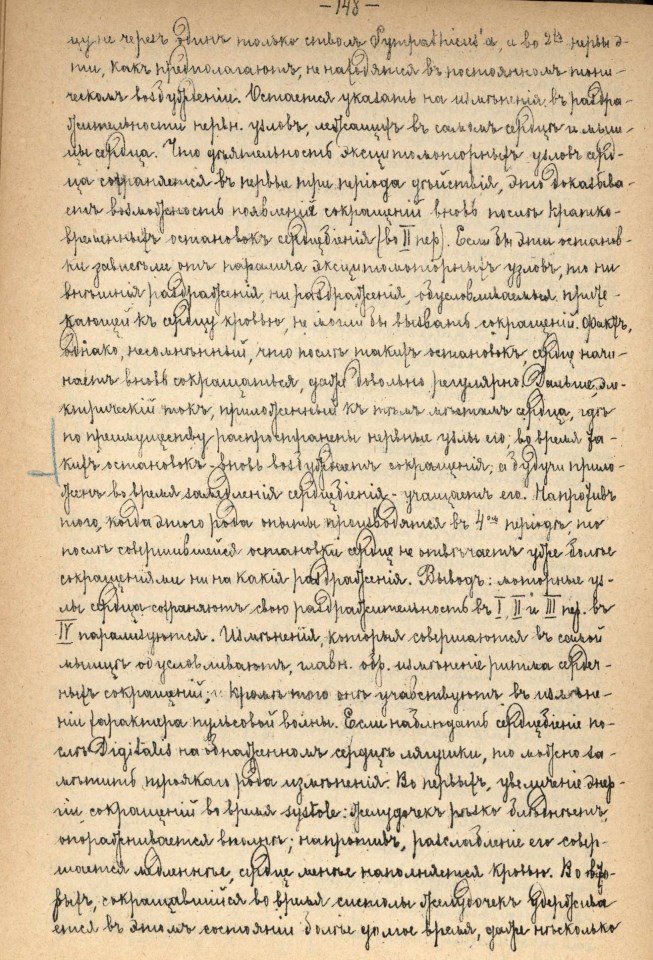 —148—
цу не черезъ одинъ только стволъ Sympathicus'а, а во 2хъ нервы э-
ти, какъ предполагаютъ, не находятся въ постоянномъ тони-
ческомъ возбужденіи. Остается указать на измѣненія въ раздра-
жительности нервн. узловъ, лежащихъ въ самомъ сердцѣ и мыш-
цы сердца. Что дѣятельность эксцитомоторныхъ узловъ серд-
ца сохраняется въ первые три періода дѣйствія, это доказыва-
етъ возможность появленія сокращеній вновь послѣ кратко-
временныхъ остановокъ сердцебіенія (во II пер). Если бы эти останов-
ки зависѣли отъ паралича эксцитомоторныхъ узловъ, то ни
внѣшнія раздраженія, ни раздраженія, обусловливаемыя прите-
кающей къ сердцу кровью, не могли бы вызвать сокращеній. Фактъ,
однако, несомнѣнный, что послѣ такихъ остановокъ, сердце начи-
наетъ вновь сокращаться, даже довольно регулярно. Дальше, эле-
ктрическій токъ, приложенный къ тѣмъ мѣстамъ сердца, гдѣ
по преимуществу распространены нервные узлы его, во время та-
кихъ остановокъ - вновь возбуждаетъ сокращенія; а будучи прило-
женъ во время замедленія сердцебіенія - учащаетъ его. Напротивъ
того, когда этого рода опыты производятся въ 4омъ періодѣ, то
послѣ совершившейся остановки сердце не отвѣчаетъ уже болѣе
сокращеніями ни на какія раздраженія. Выводъ: моторные уз-
лы сердца сохраняютъ свою раздражительность въ I, II и III пер. въ
IV парализуются. Измѣненія, которыя совершаются въ самой
мышцѣ обусловливаютъ, главн. обр. измѣненіе ритма сердеч-
ныхъ сокращеній; Кромѣ того онѣ участвуютъ въ измѣне-
ніи характера пульсовой волны. Если наблюдать сердцебіеніе по-
слѣ Digitalis на обнаженномъ сердцѣ лягушки, то можно за-
мѣтить троякаго рода измѣненія. Во первыхъ, увеличеніе энер-
гіи сокращеній во время systole: желудочекъ рѣзко блѣднѣетъ,
опоражнивается вполнѣ; напротивъ, разслабленіе его совер-
шается медленнѣе, сердце менѣе наполняется кровью. Во вто-
рыхъ, сокращавшійся во время систолы желудочекъ удержива-
ется въ этомъ состояніи болѣе долгое время, даже нѣсколько